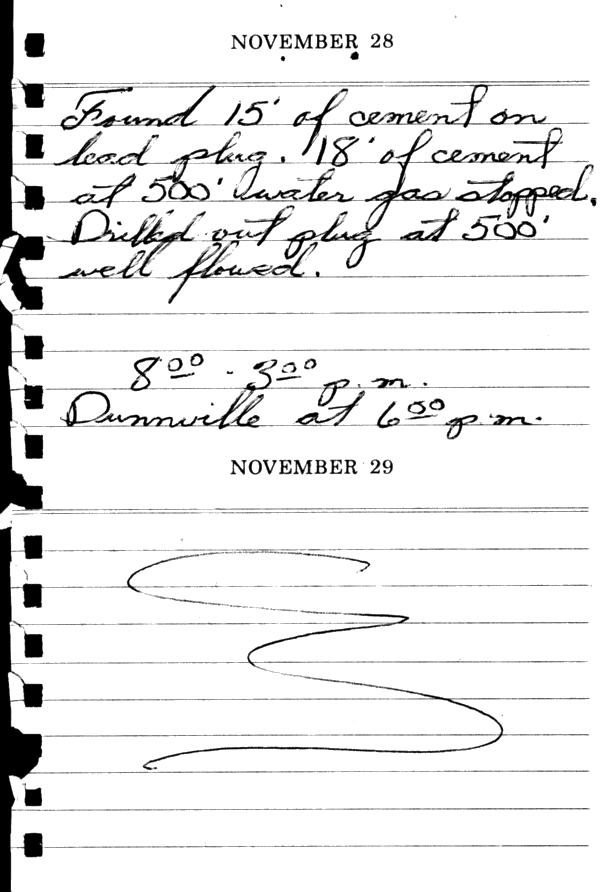 NOVEMBER 28
Found 15' of cement on
lead plug. 18' of cement
at 500' water gas stopped.
Drilled out plug at 500'
well flowed.
8 00 - 3 00 p.m.
Dunnville at 6 00 p.m.
NOVEMBER 29